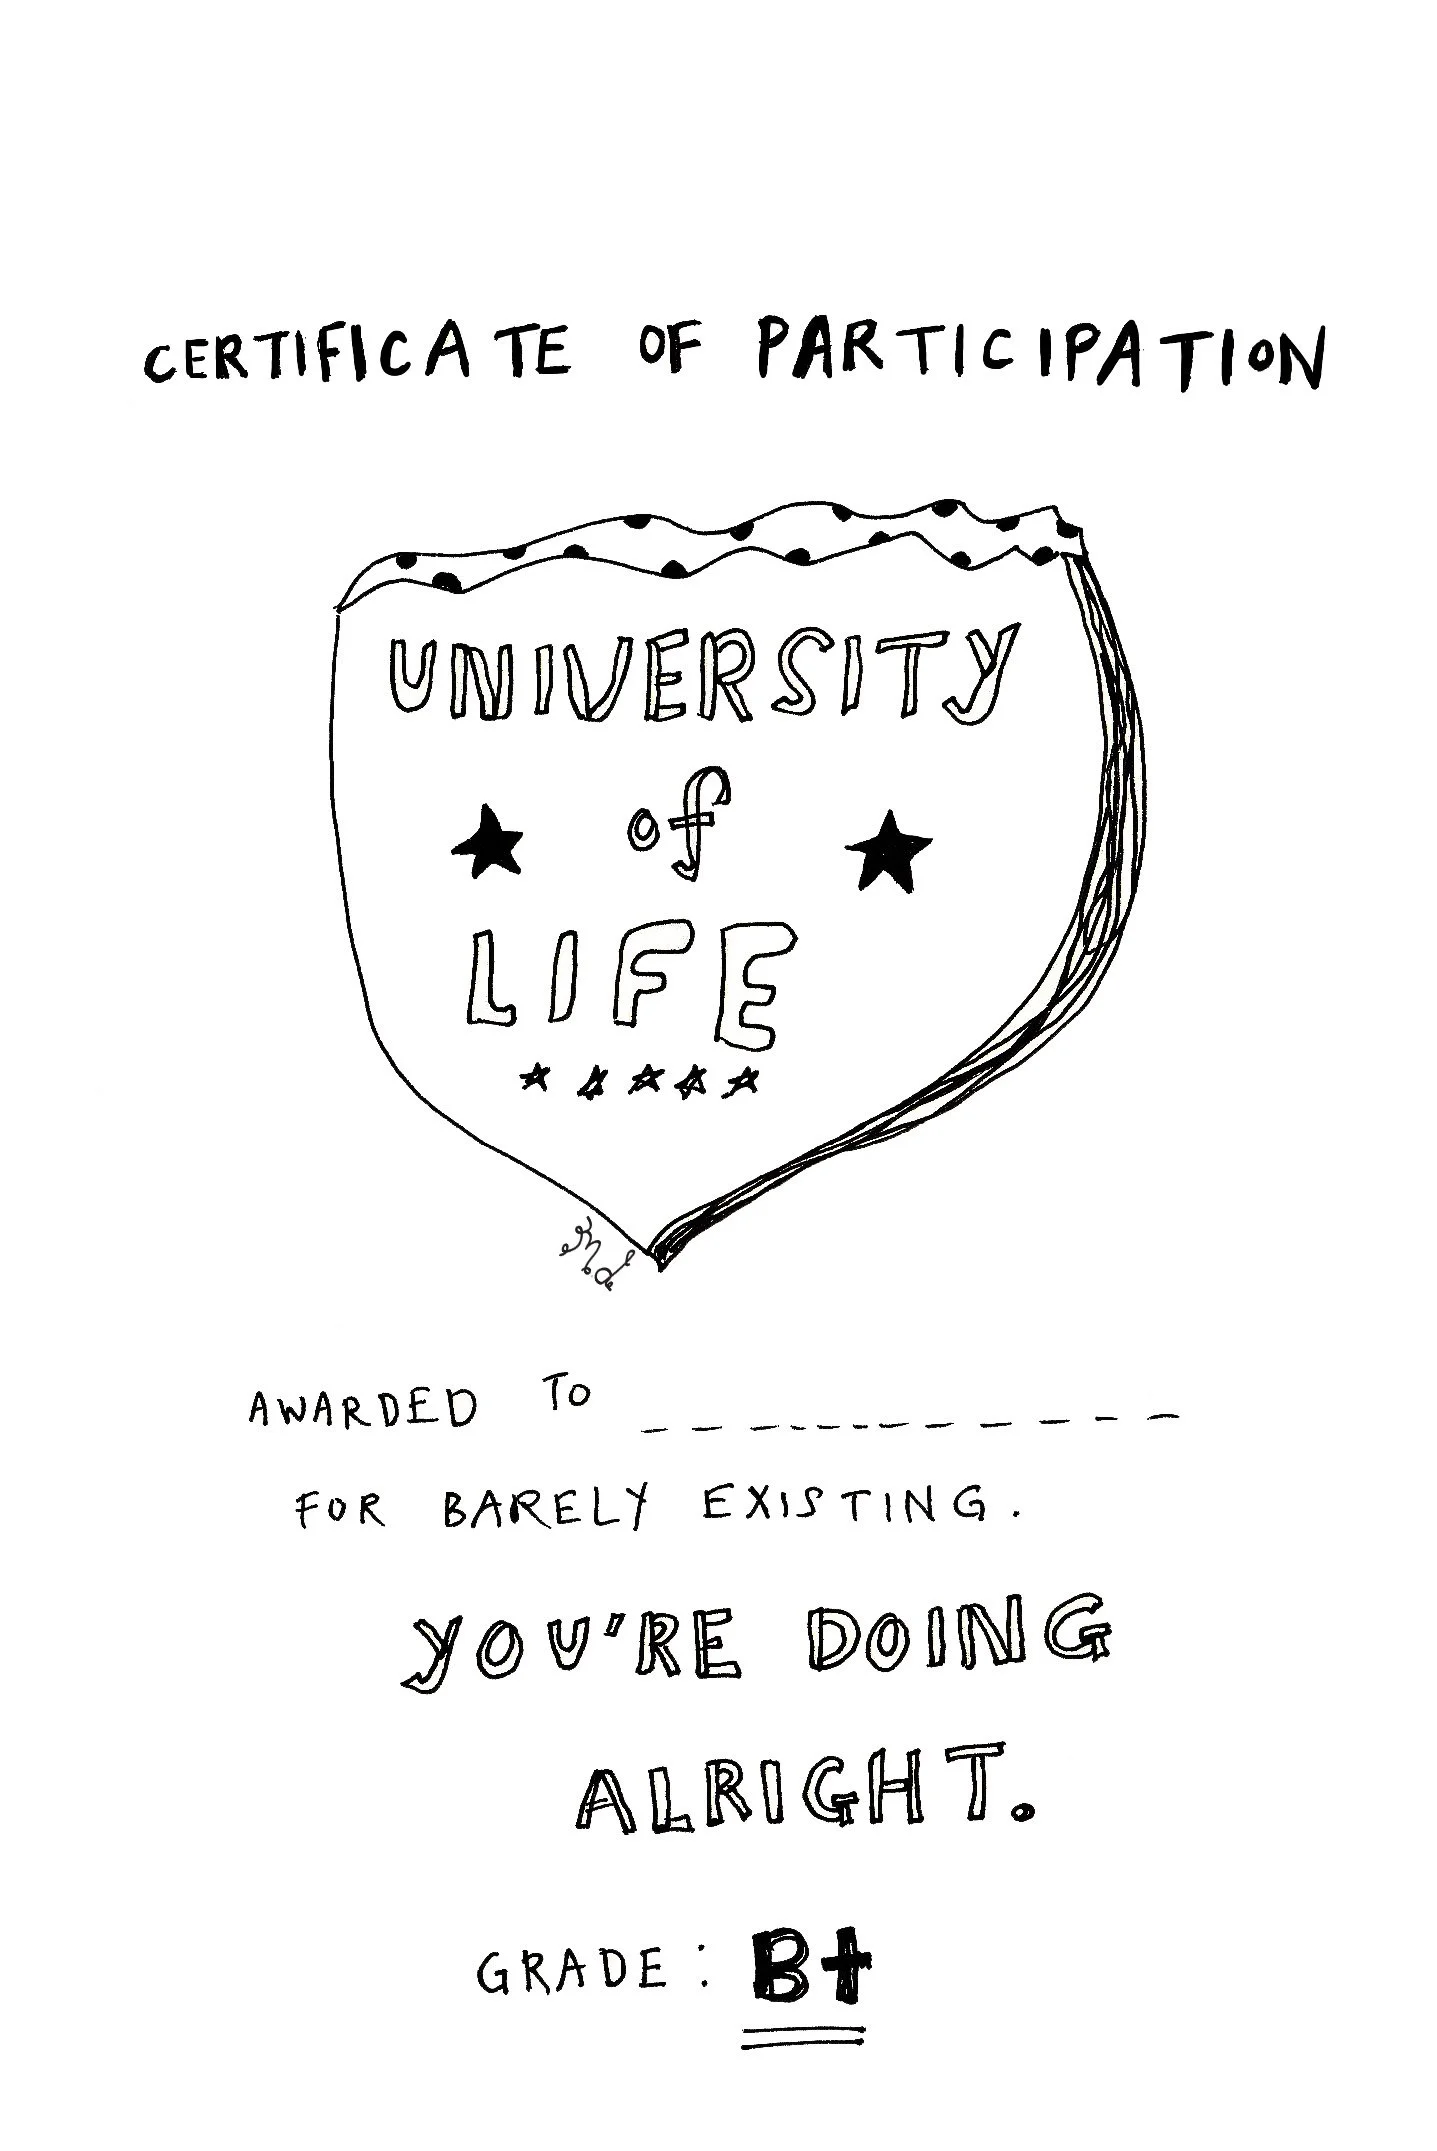 CERTIFICATE OF PARTICIPATION
UNIVERSITY
of
LIFE
AWARDED TO _ _ _ _ _ _ _ _ _ _ _ _
FOR BARELY EXISTING.
YOU'RE DOING
ALRIGHT.
GRADE: B+